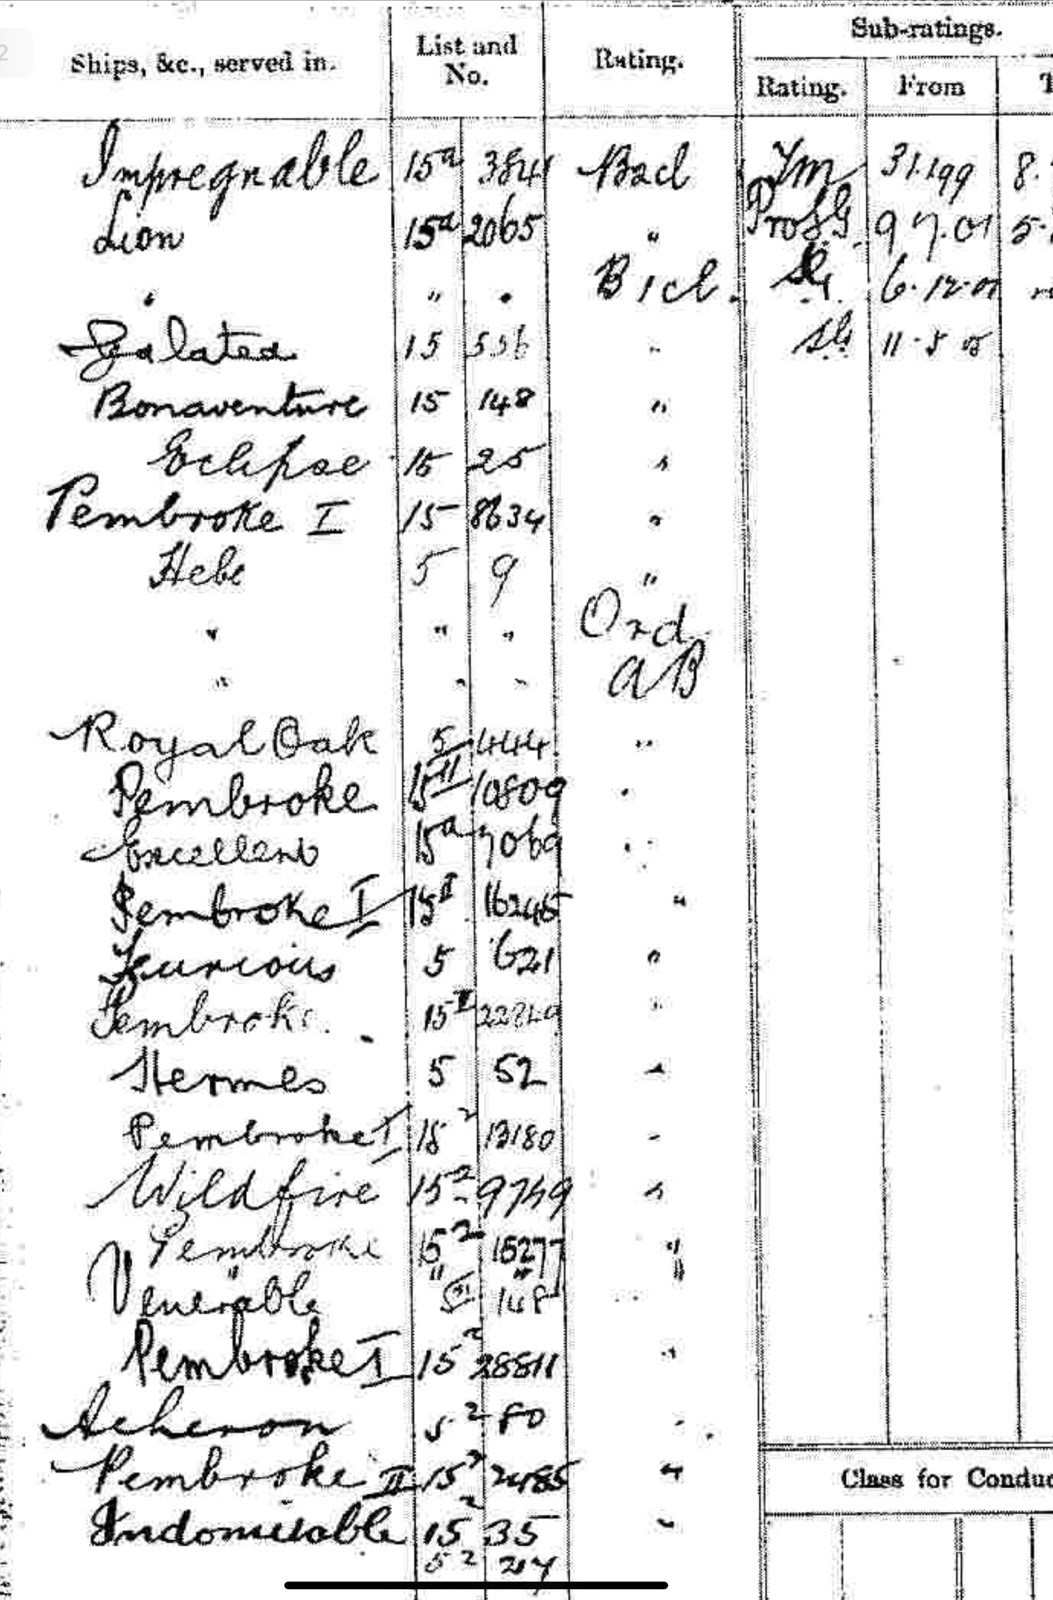 2
Sub-ratings.
Ships, &c., served in. List and No. Rating. Rating. From
Impregnable 15a 3841 B2cl 31.1.99 8.
Lion 15a 2065 " 9 7.01 5.
" " " B1cl. 6.12.01
Galatea 15 " SG 11.5.05
Bonaventure 15 148 "
Eclipse 15 25 "
Pembroke I 15 8634 "
Hebe 5 9 "
" " " Ord
" " " AB
Royal Oak 5 444 "
Pembroke 15II 10809 "
Excellent 15a 7069 "
Pembroke I 15II 16245 "
Furious 5 621 "
Pembroke 15II "
Hermes 5 52 "
Pembroke I 15 2 13180 "
Wildfire 15 2 9749 "
Pembroke 15 2 15277 "
" " " "
Venerable 148 "
Pembroke I 15 2 28811 "
Acheron 5 2 80 "
Pembroke II 15 2 2485 "
Indomitable 15 2 35 "
5 2 217
Class for Conduc